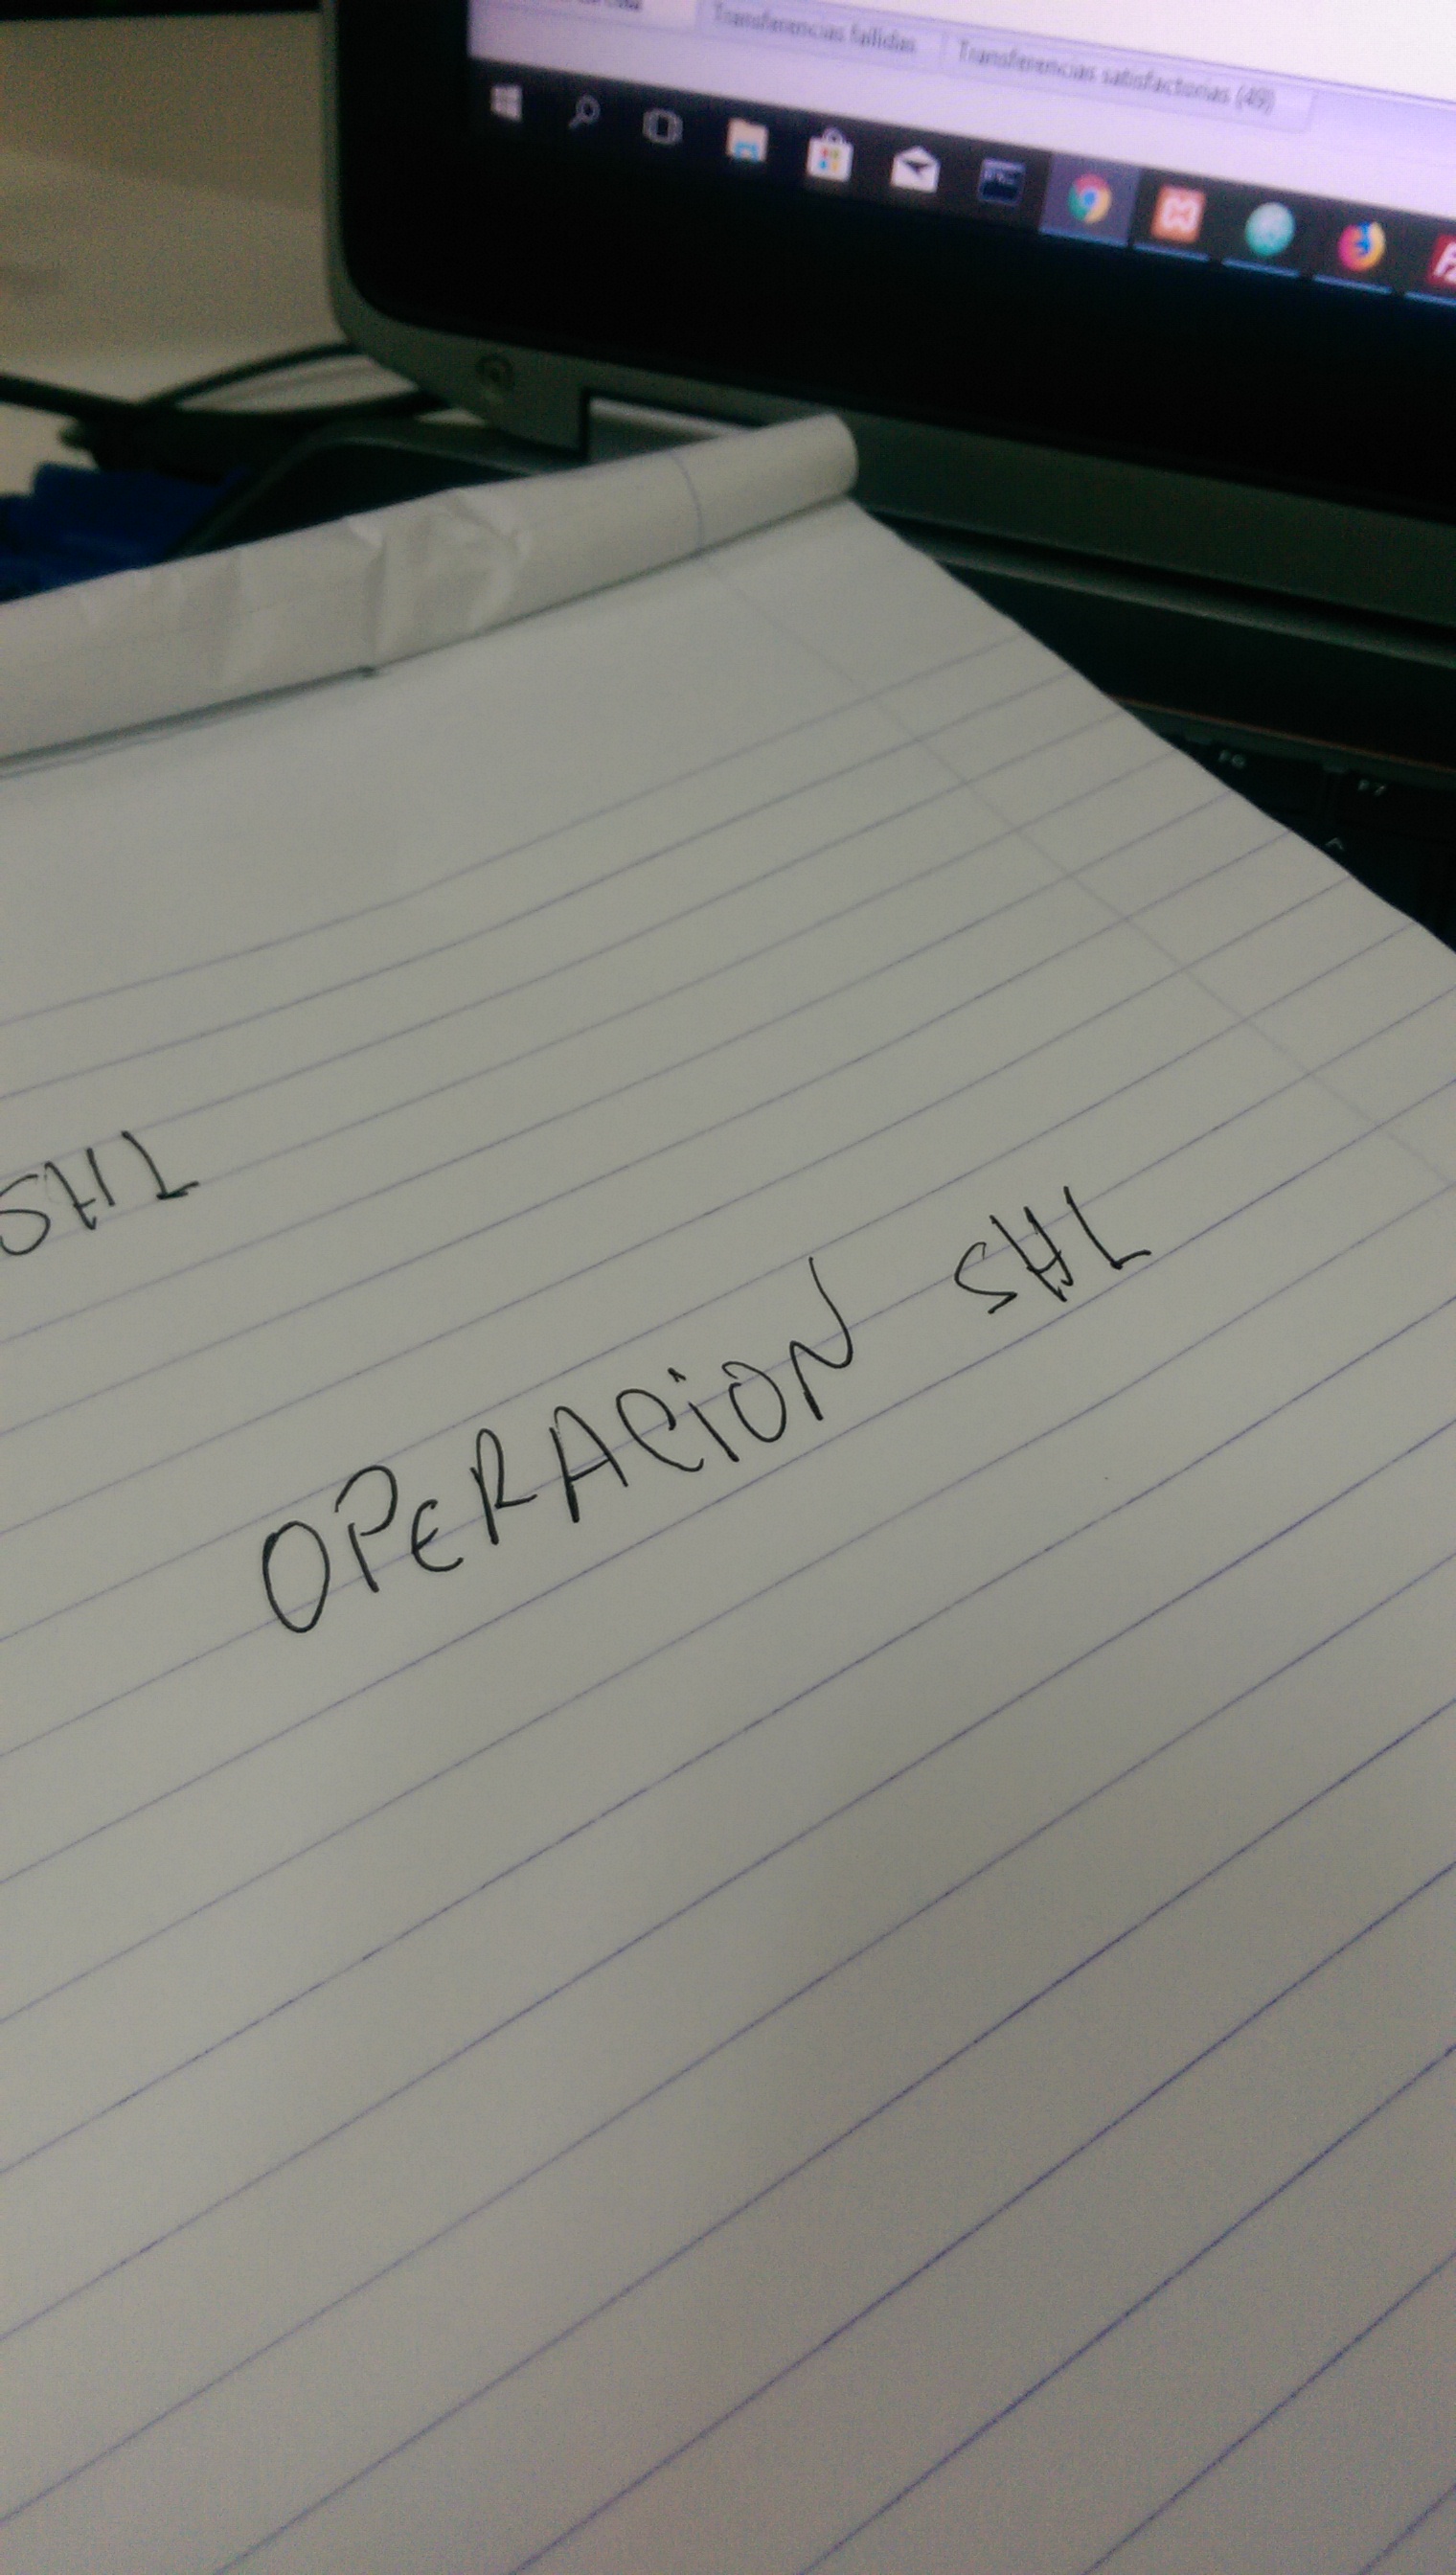 Transferencias fallidas
Transferencias satisfactorias (49)
F6
F7
SHL
OPERACION SHL